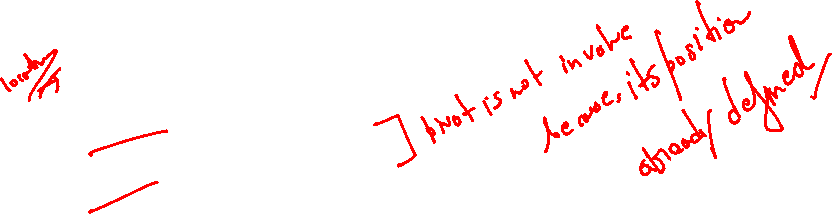 location
] pivot is not involve
because, its position
already defined